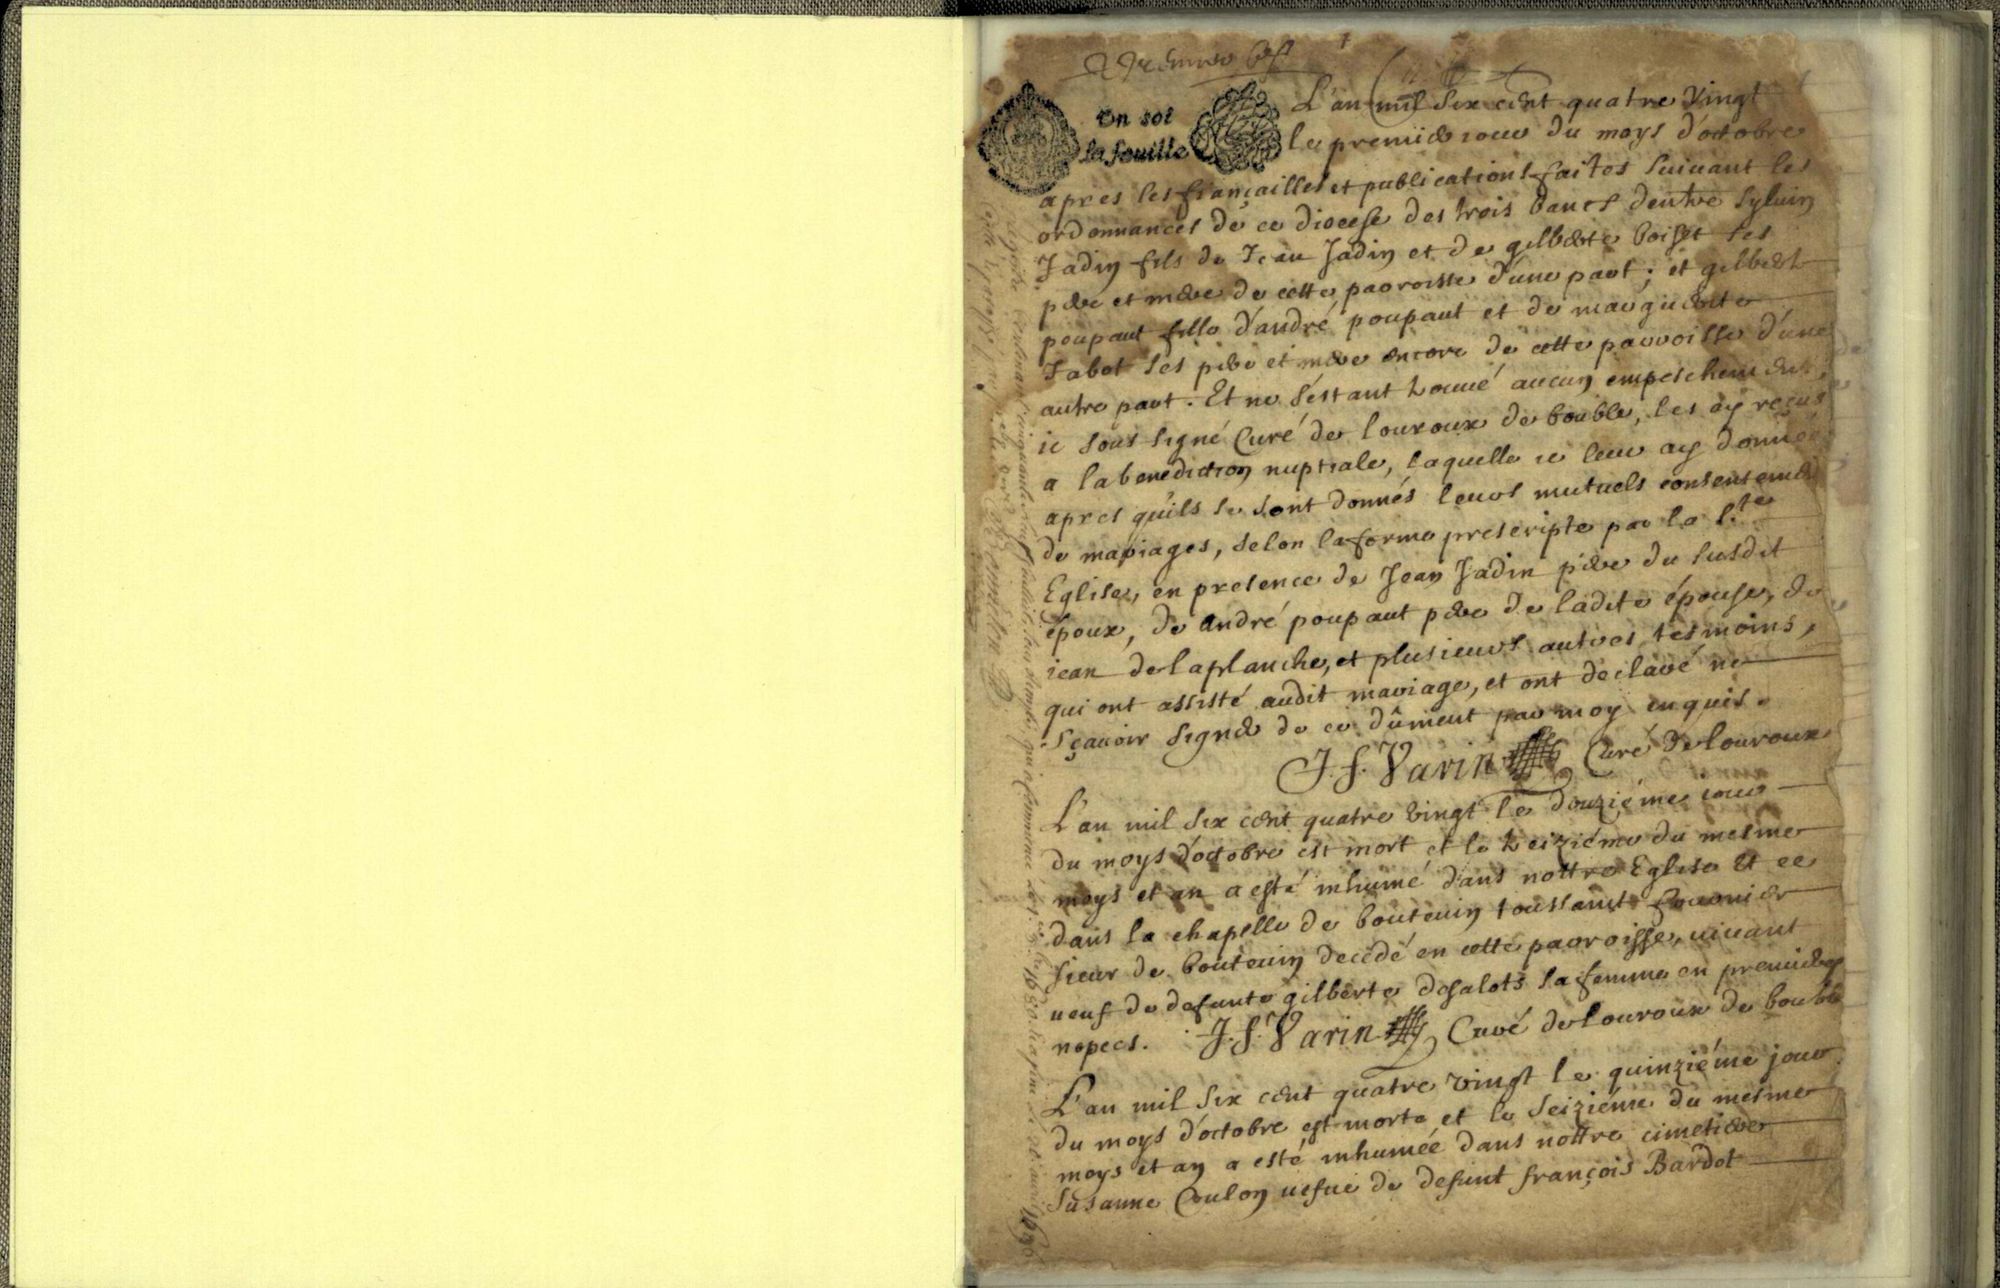 Un sol
la feuille
L'an mil six cent quatre vingt
le premier jour du moys d'octobre
apres les françailles et publications faites suivant les
ordonnances de ce diocese des trois bancs d'entre Sylvin
Jadin fils de Jean Jadin et de gilberte boiset ses
pere et mere de cette parroisse d'une part; et gilbert
poupaut fille d'andré poupaut et de marguerite
Jabot ses pere et mere encore de cette parroisse d'une
autre part. Et ne s'estant trouvé aucun empeschement,
ie sous signé Curé de louroux de bouble, les ay reçus
a la benediction nuptiale, laquelle ie leur ay donnée
apres qu'ils se sont donnés leurs mutuels consentemens
de mariages, selon la forme prescripte par la s.te
Eglise, en presence de Jean Jadin pere du susdit
époux, de andré poupaut pere de ladite épouse, de
jean delaplanche, et plusieurs autres tesmoins,
qui ont assisté audit mariage, et ont declaré ne
sçavoir signer de ce dûment par moy enquis.
J. f. Varin Curé de louroux
L'an mil six cent quatre vingt le douziéme jour
du moys d'octobre est mort et le treiziéme du mesme
moys et an a esté inhumé dans nottre Eglise et ce
dans la chapelle de bouteuin toussaint fournier
sieur de bouteuin decedé en cette parroisse, vivant
veuf de defunte gilberte desalots sa femme en premieres
nopces. J. f. Varin Curé de louroux de bouble
L'an mil six cent quatre vingt le quinziéme jour
du moys d'octobre est morte et le seiziéme du mesme
moys et an a esté inhumée dans nottre cimetiere
Susanne Coulon vefue de defunt françois Bardot